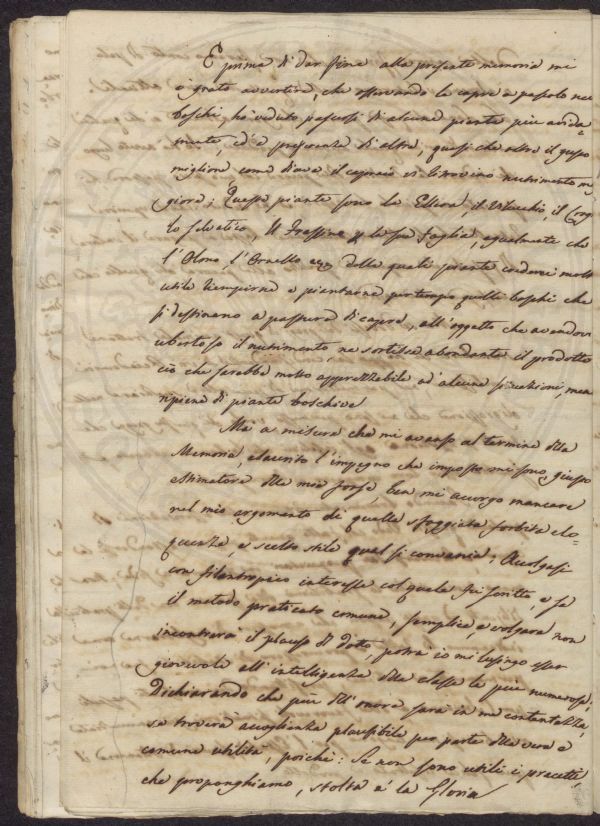 E prima di dar fine alla presente memoria mi
è grato avvertire, che osservando le capre a pascolo nei
boschi, hò veduto pascersi di alcune piante più avida=
mente, ed a preferenza di altre, quasi che oltre il gusto
migliore come diceva il capraio vi trovino nutrimento mi
gliore; Queste piante sono la Ellera, il Vilucchio, il
lo selvatico, Il Frassine, e le sue foglie, egualmente che
l'Olmo, l'Ornello delle quali piante crederei molto
utile riempirne e piantarne per tempo quelli boschi che
si destinano a pastura di capre, all'oggetto che avendovi
ubertoso il nutrimento, ne sortisse abondante il prodotto
ciò che sarebbe molto apprezzabile ad alcune situazioni, men
ripiene di piante boschive
Ma a misura che mi avanso al termine della
Memoria, esaurito l'impegno che imposto mi sono, giusto
estimatore delle mie forse ben mi accorgo mancare
nel mio argomento di quella sfoggiata forbita elo=
quenza, e scelto stile qual si conveniva; Accolgasi
con filantropico interesse col quale fu scritto, e se
il metodo praticato comune, semplice, e volgare non
incontrerà il plauso di dotto, potrà io mi lusingo esser
giovevole all'intelligenza della classe le più numerosa;
Dichiarando che più dell'onore sarà in me contentezza,
se troverà accoglienza plausibile per parte della vera e
comune utilità, poiché: Se non sono utili i precetti
che proponghiamo, stolta è la Gloria